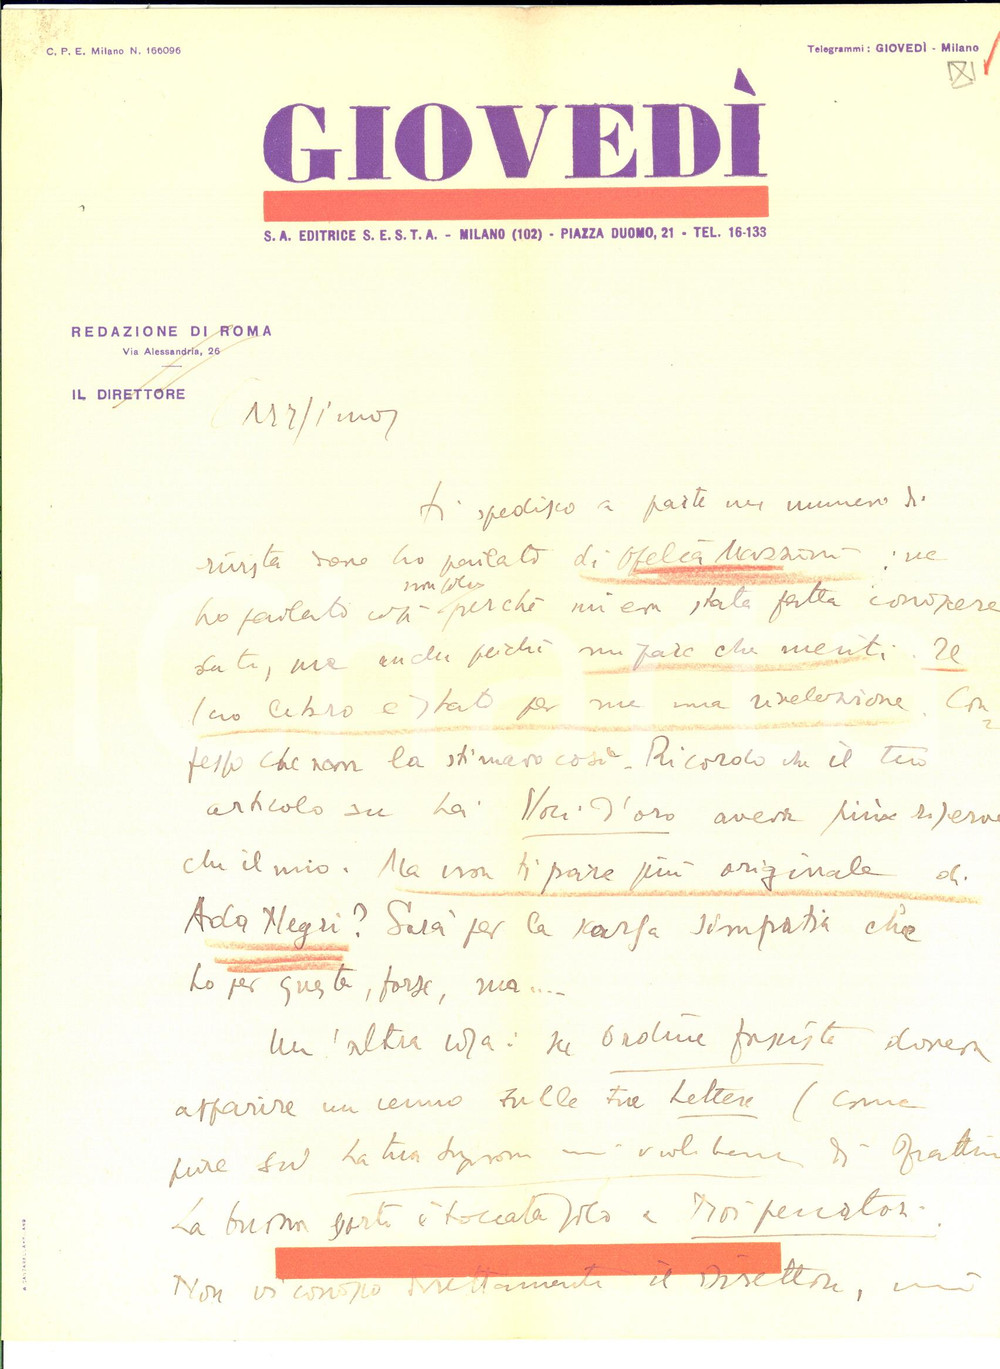 C. P. E. Milano N. 166096
Telegrammi: GIOVEDÌ - Milano
GIOVEDÌ
S. A. EDITRICE S. E. S. T. A. - MILANO (102) - PIAZZA DUOMO, 21 - TEL. 16-133
REDAZIONE DI ROMA
Via Alessandria, 26
IL DIRETTORE
ti spedisco a parte un numero di
rivista dove ho parlato di Ofelia Mazzoni; ne
non solo
ho parlato così perchè mi era stata fatta conoscere
da te, ma anche perchè mi pare che meriti. Il
suo libro è stato per me una rivelazione. Con=
fesso che non la stimavo così. Ricordo che il tuo
articolo su Noci d'oro aveva più riserve
che il mio. Ma non ti pare più originale di
Ada Negri? Sarà per la scarsa simpatia che
ho per questa, forse, ma....
Un'altra cosa: su Ordine fascista doveva
apparire un cenno sulle tue Lettere (come
pure sul di Frattini
La buona sorte è toccata solo a Noi peccatori.
Non vi conosco direttamente il direttore,